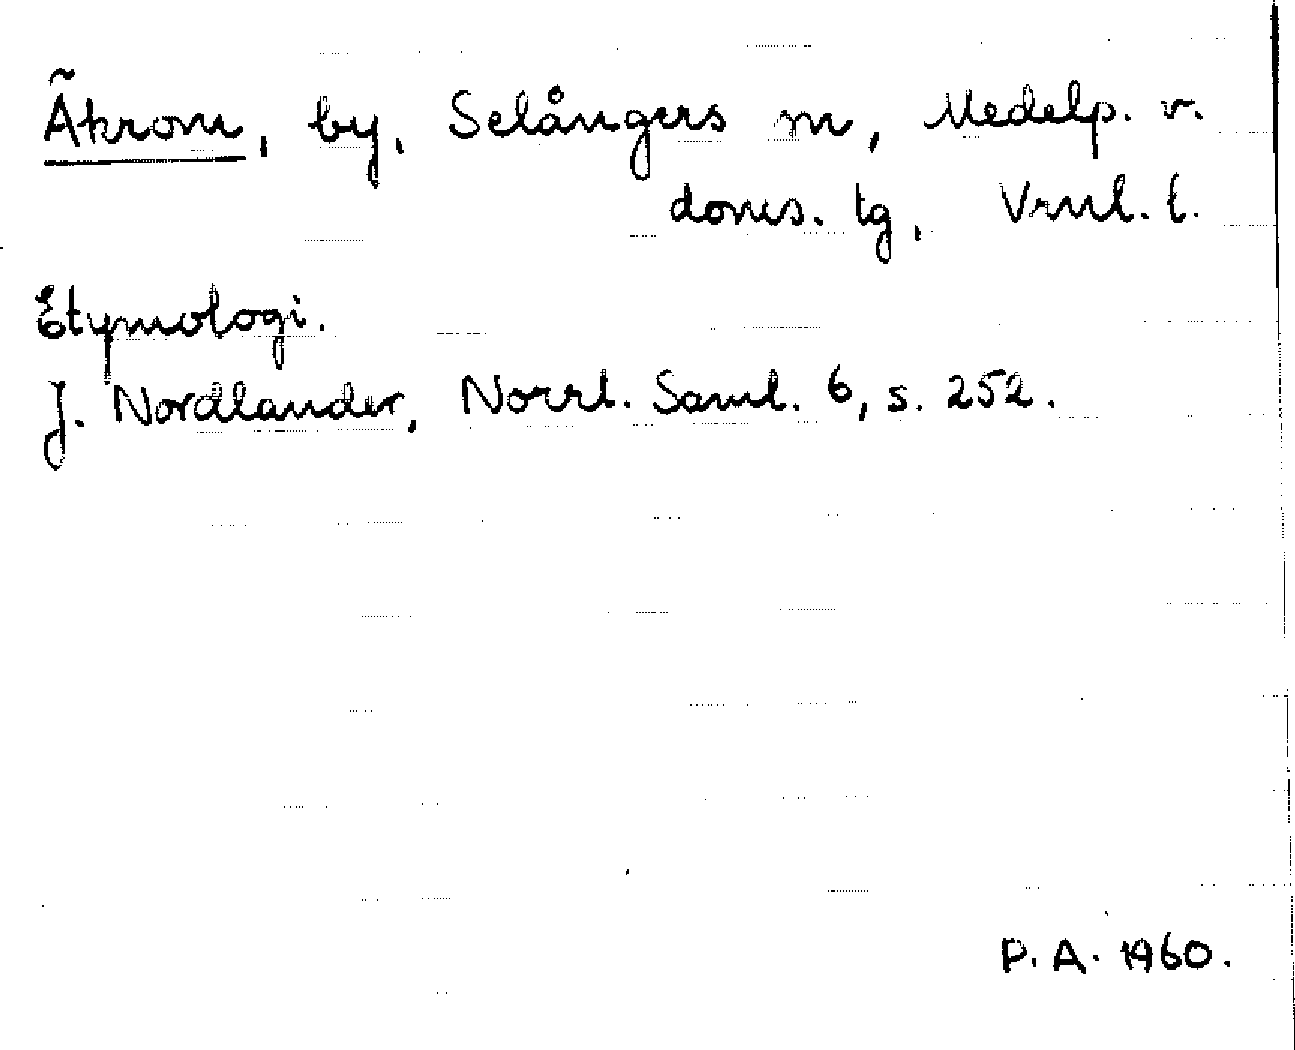 Äkrom, by, Selångers sn, Medelp. v.
doms. tg, Vrnl. l.
Etymologi.
J. Nordlander, Norrl. Saml. 6, s. 252.
P. A. 1960.